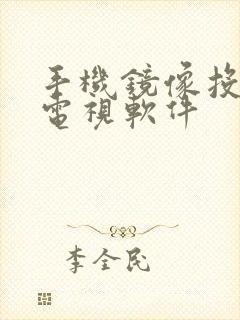 手機鏡像投
電視軟件
李全民